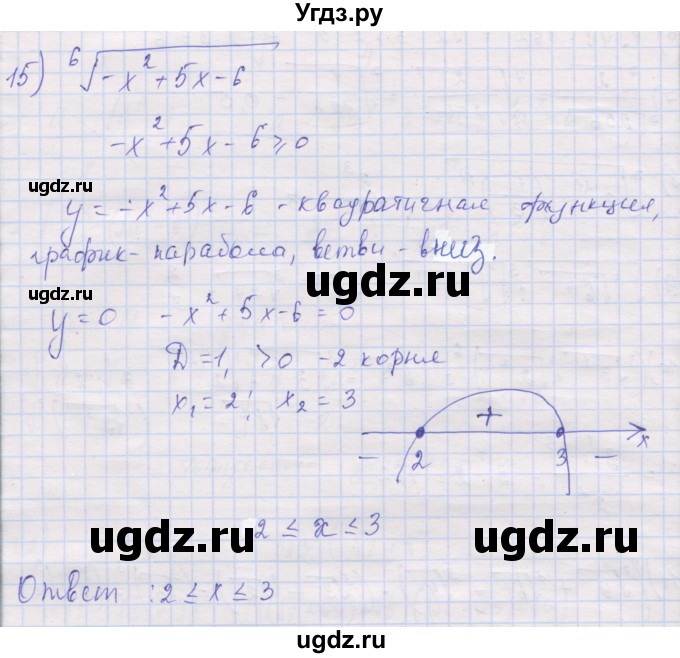 Угдз.ру
15) ⁶√-x²+5x-6
-x²+5x-6≥0
ugdz.ru
y=-x²+5x-6 - квадратичная функция,
график - парабола, ветви - вниз.
ugdz.ru
ugdz.ru
y=0 -x²+5x-6=0
D=1, >0 -2 корня
x₁=2; x₂=3
+
x
- 2 3 -
ugdz.ru
ugdz.ru
2≤x≤3
Ответ: 2≤x≤3
ugdz.ru